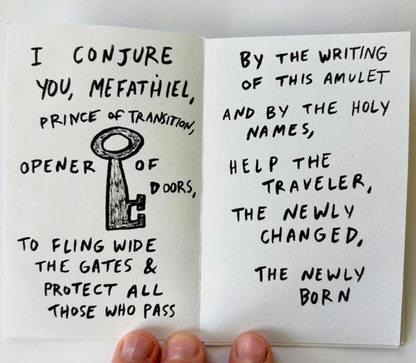 I CONJURE
YOU, MEFATHIEL,
PRINCE OF TRANSITION,
OPENER OF
DOORS,
TO FLING WIDE
THE GATES &
PROTECT ALL
THOSE WHO PASS
BY THE WRITING
OF THIS AMULET
AND BY THE HOLY
NAMES,
HELP THE
TRAVELER,
THE NEWLY
CHANGED,
THE NEWLY
BORN